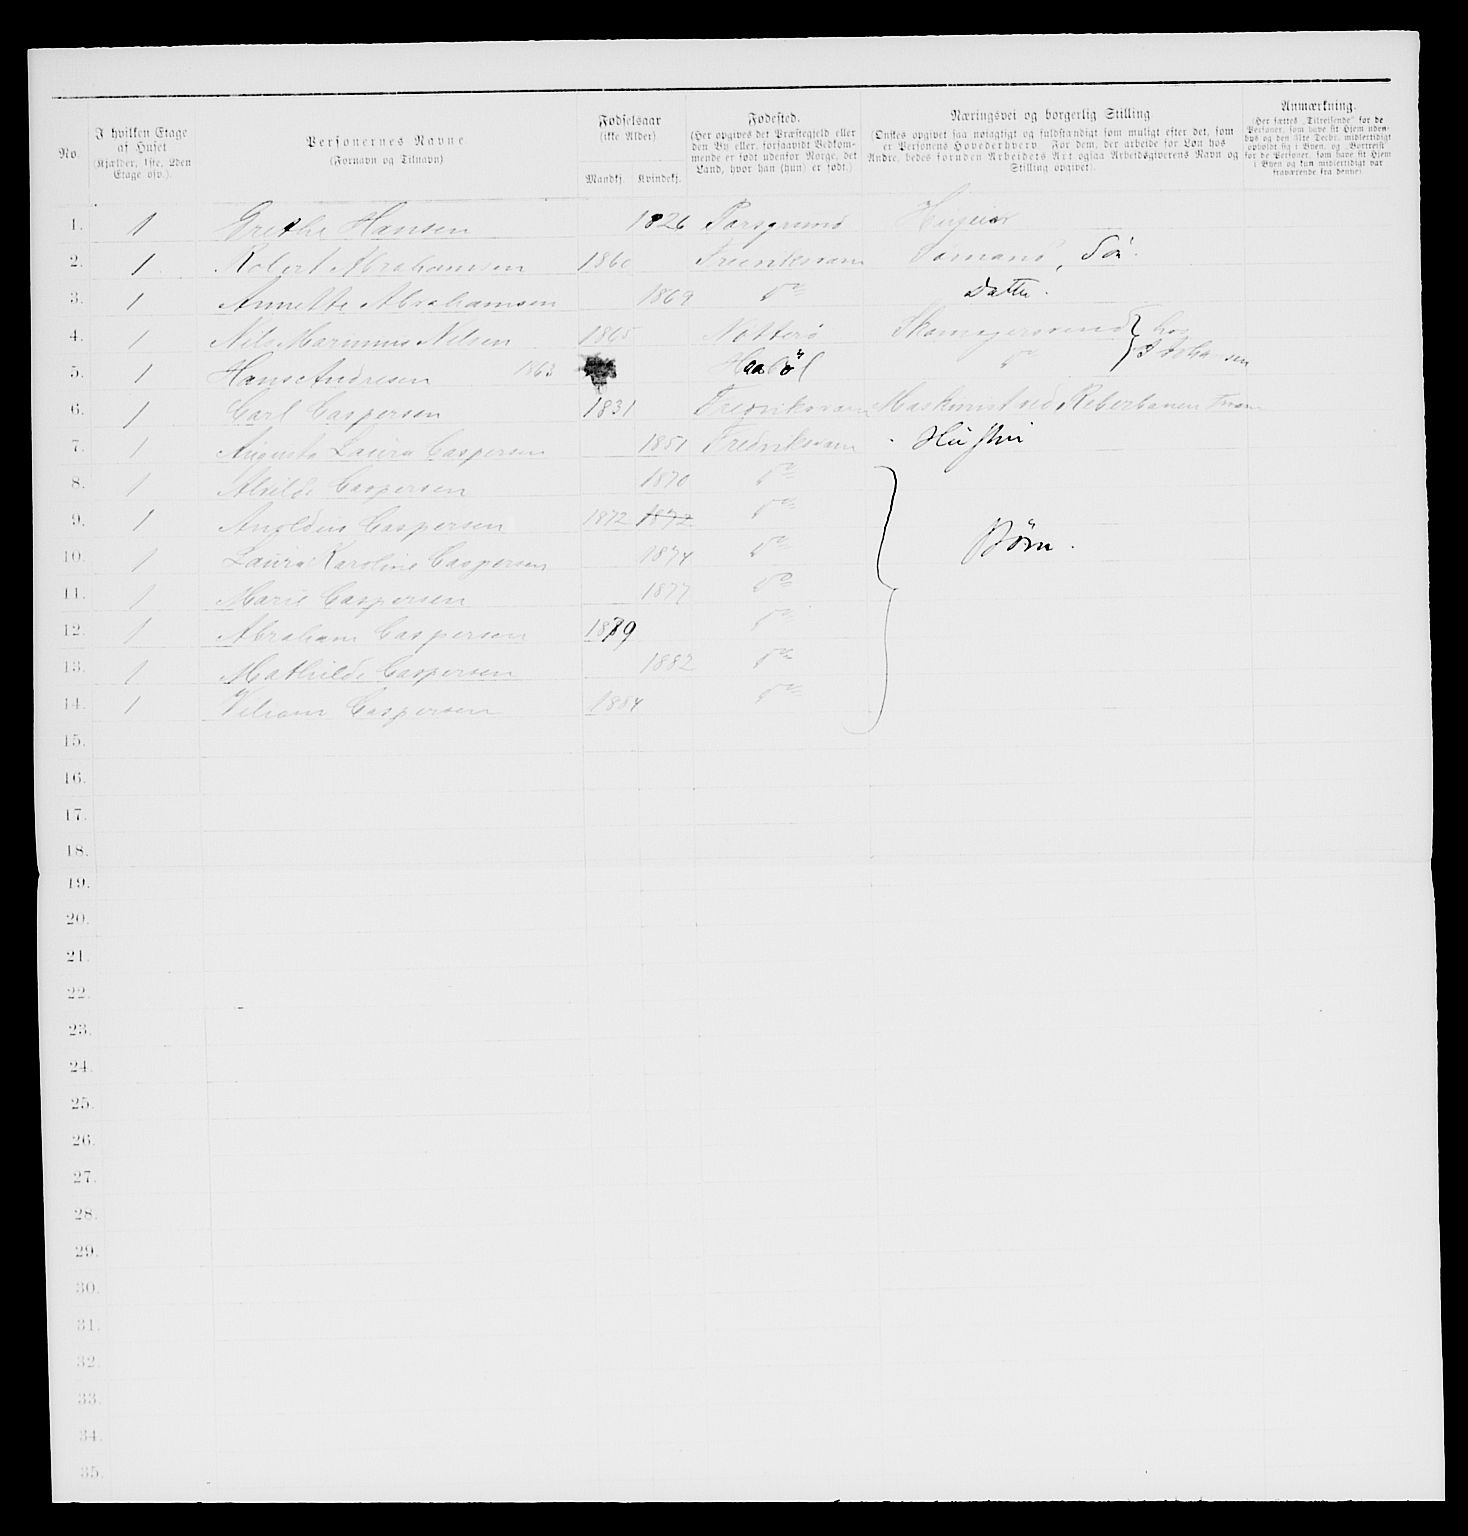 No. | I hvilken Etage af Huset (Kjælder, 1ste, 2den Etage osv.). | Personernes Navne (Fornavn og Tilnavn) | Fødselsaar (ikke Alder) Mandkj. Kvindekj. | Fødested. (Her opgives det Præstegjeld eller den By eller, forsaavidt Vedkommende er født udenfor Norge, det Land, hvor han (hun) er født.) | Næringsvei og borgerlig Stilling (Ønskes opgivet saa nøiagtigt og fuldstændigt som muligt efter det, som er Personens Hovederhverv. For dem, der arbeide for Løn hos Andre, bedes foruden Arbeidets Art ogsaa Arbeidsgiverens Navn og Stilling opgivet). | Anmærkning. (Her sættes „Tilreisende“ for de Personer, som have sit Hjem udenbys og den 31te Decbr. midlertidigt opholdt sig i Byen, og „Bortreist“ for de Personer, som have sit Hjem i Byen og kun midlertidigt var fraværende fra denne).
1. 1 Grethe Hansen 1826 Porsgrund Huseier
2. 1 Robert Abrahamsen 1860 Fredriksværn Sømand, Søn.
3. 1 Annette Abrahamsen 1869 do Datter.
4. 1 Nils Marinus Nilsen 1865 Nøtterø Skomagersvend } hos
5. 1 Hans Andresen 1863 Haabøl do Johansen
6. 1 Carl Caspersen 1831 Fredriksværn Maskinist ved Reberbanen
7. 1 Augusta Laura Caspersen 1851 Fredriksværn Hustru
8. 1 Alvilde Caspersen 1870 do
9. 1 Caspersen 1872 1872 do
10. 1 Laura Karoline Caspersen 1874 do Børn.
11. 1 Marie Caspersen 1877 do
12. 1 Abraham Caspersen 1879 do
13. 1 Mathilde Caspersen 1882 do
14. 1 Viliam Caspersen 1884 do
15.
16.
17.
18.
19.
20.
21.
22.
23.
24.
25.
26.
27.
28.
29.
30.
31.
32.
33.
34.
35.